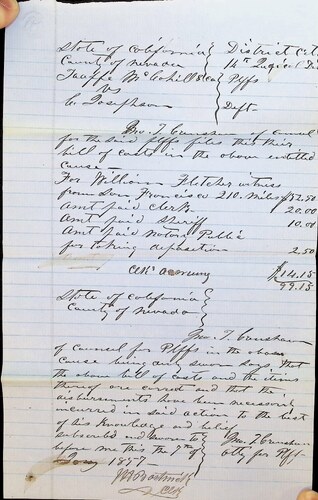 State of California } District C
County of Nevada } 14th Judicial Di
Taaffe McCahill & Co } Plffs
vs
C. Josephson } Deft
Wm. T. Caushan of counsel
for the said Plffs files this their
bill of costs in the above entitled
cause
For William Fletcher witness
from San Francisco 210. miles $52.50
Amt paid Clerk 20.00
Amt paid Sheriff 10.00
Amt paid Notary Public
for taking deposition 2.50
$14.15
99.15
State of California }
County of Nevada }
Wm. T. Caushan
of counsel for Plffs in the above
cause being duly sworn says that
the above bill of costs and the items
thereof are correct and that the
disbursements have been necessarily
incurred in said action to the best
of his knowledge and belief
subscribed and sworn to } Wm. T. Caushan
before me this the 7th of } Atty for Plff
1857